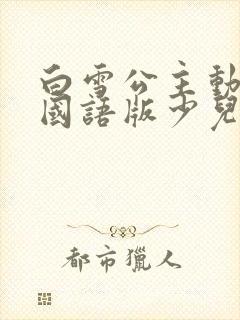 白雪公主動
國語版少兒
都市獵人